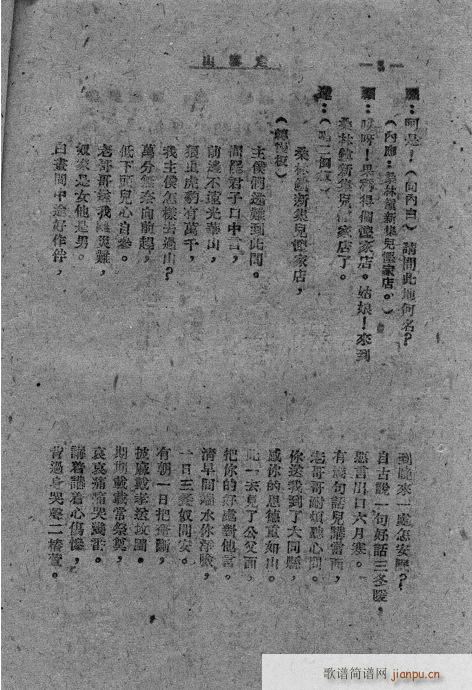 山
一3一
：阿是！（向內白）請問此地何名？
（內應：桑林鎮新集兒僱家店。）
：呀呀！果然得個僱家店。姑娘！來到
桑林鎮新集兒僱家店了。
桑林鎮新集兒僱家店，
主僕們逃難到此間。
君子口中言，
前邊不遠光華山，
狼虫虎豹有萬千，
我主僕怎樣去過山？
萬分無奈向前趕，
低下頭兒心自參。
老哥哥
奴家是女他是男。
白晝間中途好作伴，
到晚來一處怎安眠？
自古說一句好話三冬暖，
惡言出口六月寒。
有幾句話兒講當面，
老哥哥耐煩聽心間。
你送我到了大同縣，
感你的恩德重如山。
此一去見了公父面，
把你的好處對他言。
清早間端水你淨臉，
一日三餐奴問安。
有朝一日把
披蔴戴孝送墳園。
期期載載當祭奠，
哀哀痛痛哭幾番。
講着講着心傷慘，
背過身哭聲二椿萱。
歌谱简谱网
jianpu.cn